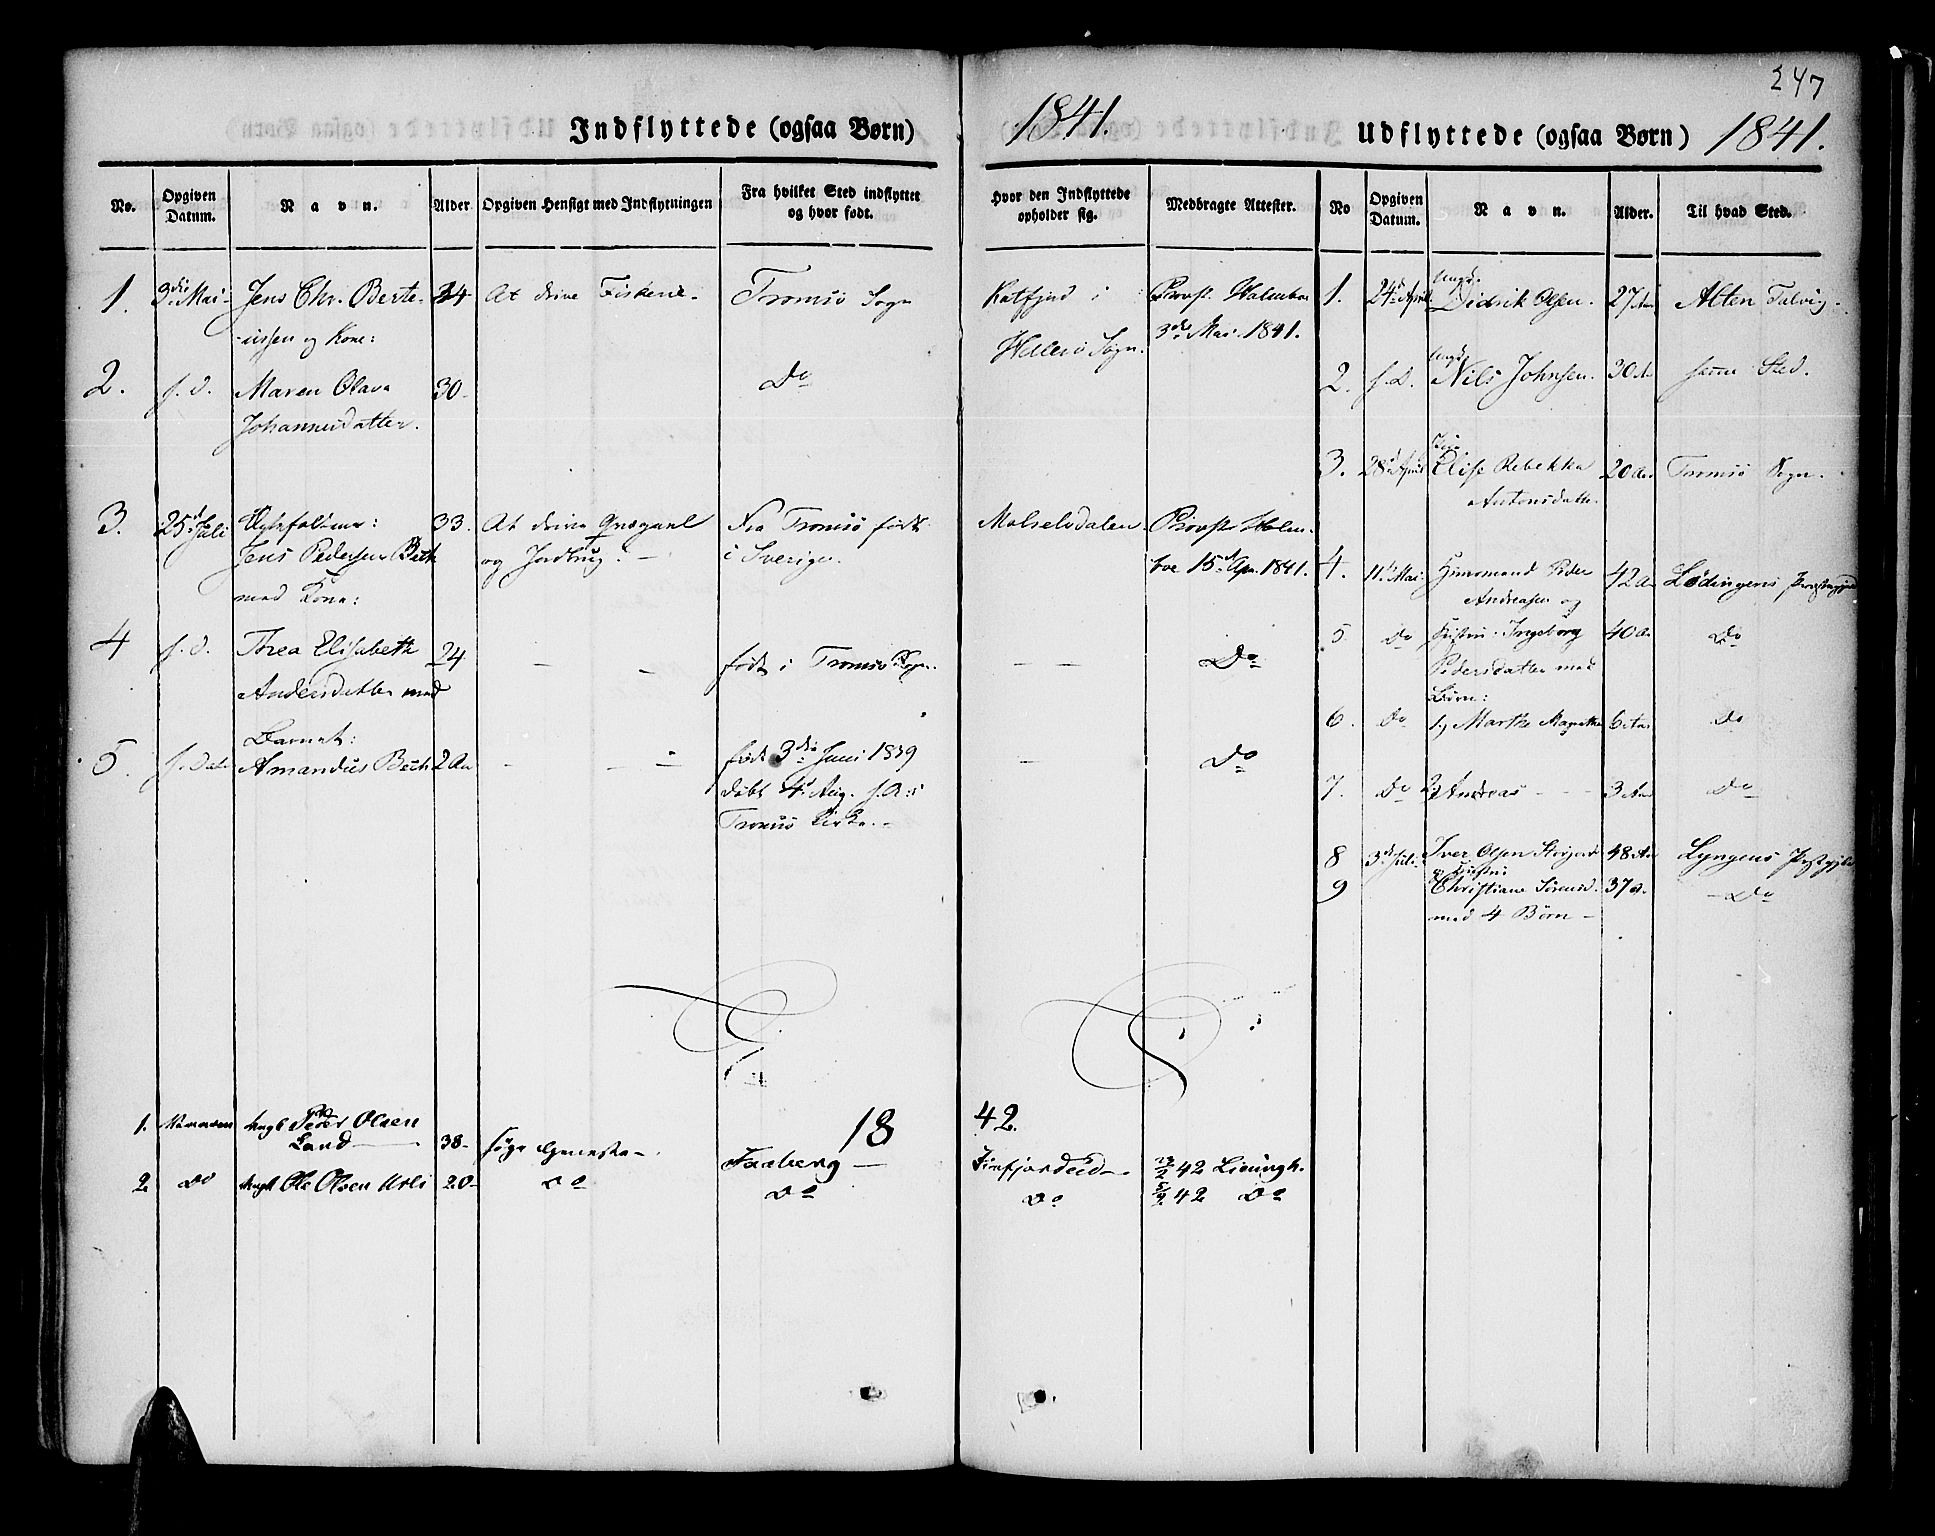 247
Indflyttede (ogsaa Børn)
1841.
Udflyttede (ogsaa Børn) 1841.
No. Opgiven Datum. Navn. Alder Opgiven Hensigt med Indflytningen Fra hvilket Sted indflyttet og hvor født. Hvor den Indflyttede opholder sig. Medbragte Attester.
No Opgiven Datum. Navn. Alder. Til hvad Sted.
1. 3die Mai Jens Chr. Berte- 34 At drive Fiskerie Tromsö Sogn Katfjord i Provst Holmboe
-ussen og Kone: Hillesö Sogn. 3die Mai 1841.
2. s. D. Maren Olava 30 Do
Johannesdatter.
3. 25d Juli 33. At drive Qvægavl Fra Tromsö født Malselvdalen Provst Holm-
Jens Pedersen Bech og Jordbrug. i Sverige. boe 15d Apr. 1841.
med Kone:
4 s. d. Threa Elisabeth 24 født i Tromsö Sogn. Do
Andersdatter med
Barnet:
5. s. Dato Amandus Bech 2 Aar født 3die Juni 1839 Do
døbt 4d Aug. s. A. i
Tromsö Kirke.
1. 24d April Ungk. Didrik Olsen. 27 Aar Alten Talvig
2. s. D. Ungk. Nils Johnsen. 30 Aar samme Sted.
3. 28d April Pige Elise Rebekka 20 Aar Tromsö Sogn.
Antonsdatter.
4. 11t Mai Huusmand Peder 42 Aar Lødingens Præstegjeld
Andreasen og
5. Do Hustru Ingeborg 40 Aar Do
Pedersdatter med
Börn:
6. Do 1) Marthe Magrethe 6 Aar Do
7. Do 2) Andreas 3 Aar Do
8 3d Juli Iver Olsen 48 Aar Lyngens Præstegjeld
og Hustru
9 Christiane Sörensd. 37 A. Do
med 4 Börn
1842.
1. Ungk Peder Olsen
Land 38 søge Tjeneste Faaberg Finfjordeid 42
2. Do Ungk Ole Olsen 20 Do Do Do 42 Do